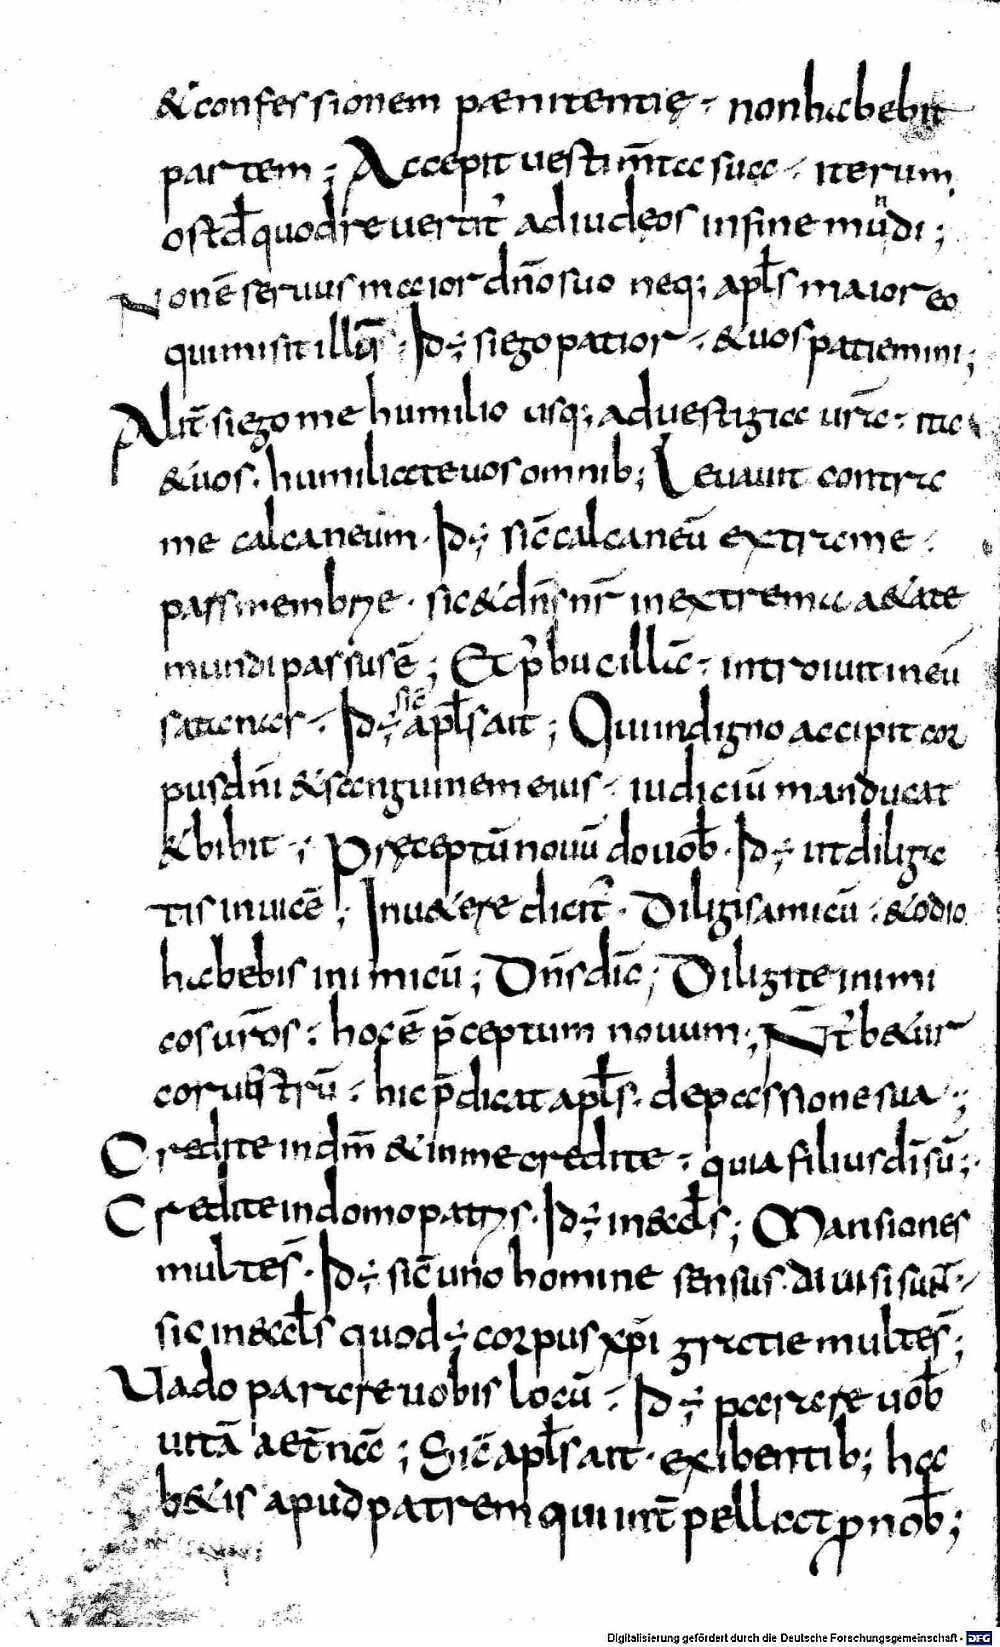 &confessionem pænitentię · non habebit
partem ; Accepit uestim̄ta sua · iterum
ostd̄ quod reuertit᷑ ad iudeos in fine mundi ;
Non ē seruus maior dn̄o suo neq; apl̄s maior eo
qui misit illū · Id ÷ si ego patior · & uos patiemini ;
Alit̄ si ego me humilio usq; ad uestigia ur̄a · ita
& uos · humiliate uos omnib; Leuauit contra
me calcaneum · Id ÷ sic̄ calcaneū extreme ·
pars membre · sic & dn̄s nr̄ in extrema aetate
mundi passus ē ; Et p̄ bucillā · introiuit in eū
satanas · Id ÷ sic̄ apl̄s ait ; Qui indigno accipit cor
pus dn̄i & sanguinem eius · iudiciū manducat
& bibit ·; Pręceptū nouū do uob̄ · Id ÷ ut diliga
tis inuicē ; In uetere dicit᷑ · Diligis amicū · & odio
habebis inimicū ; Dn̄s dic̄ ; Diligite inimi
cos ur̄os : hoc ē p̄ceptum nouum ; N̄ t᷑betur
cor uestrū · hic p̄dicat apl̄s · de passione sua ·;
Credite in dm̄ & in me credite · quia filius dī sū ;
Credite in domo patris · Id ÷ in eccl̄s ; Mansiones
multe s̄ · Id ÷ sic̄ uno homine sensus diuisi sunt ·
sic in eccl̄s quod ÷ corpus xp̄i gratie multe s̄ ;
Uado parare uobis locū · Id ÷ parare uob̄
uitā aet̄na ; Sic̄ apl̄s ait · exibentib; ha
betis apud patrem qui int̄pellat pro nob̄ ;
Digitalisierung gefördert durch die Deutsche Forschungsgemeinschaft - DFG